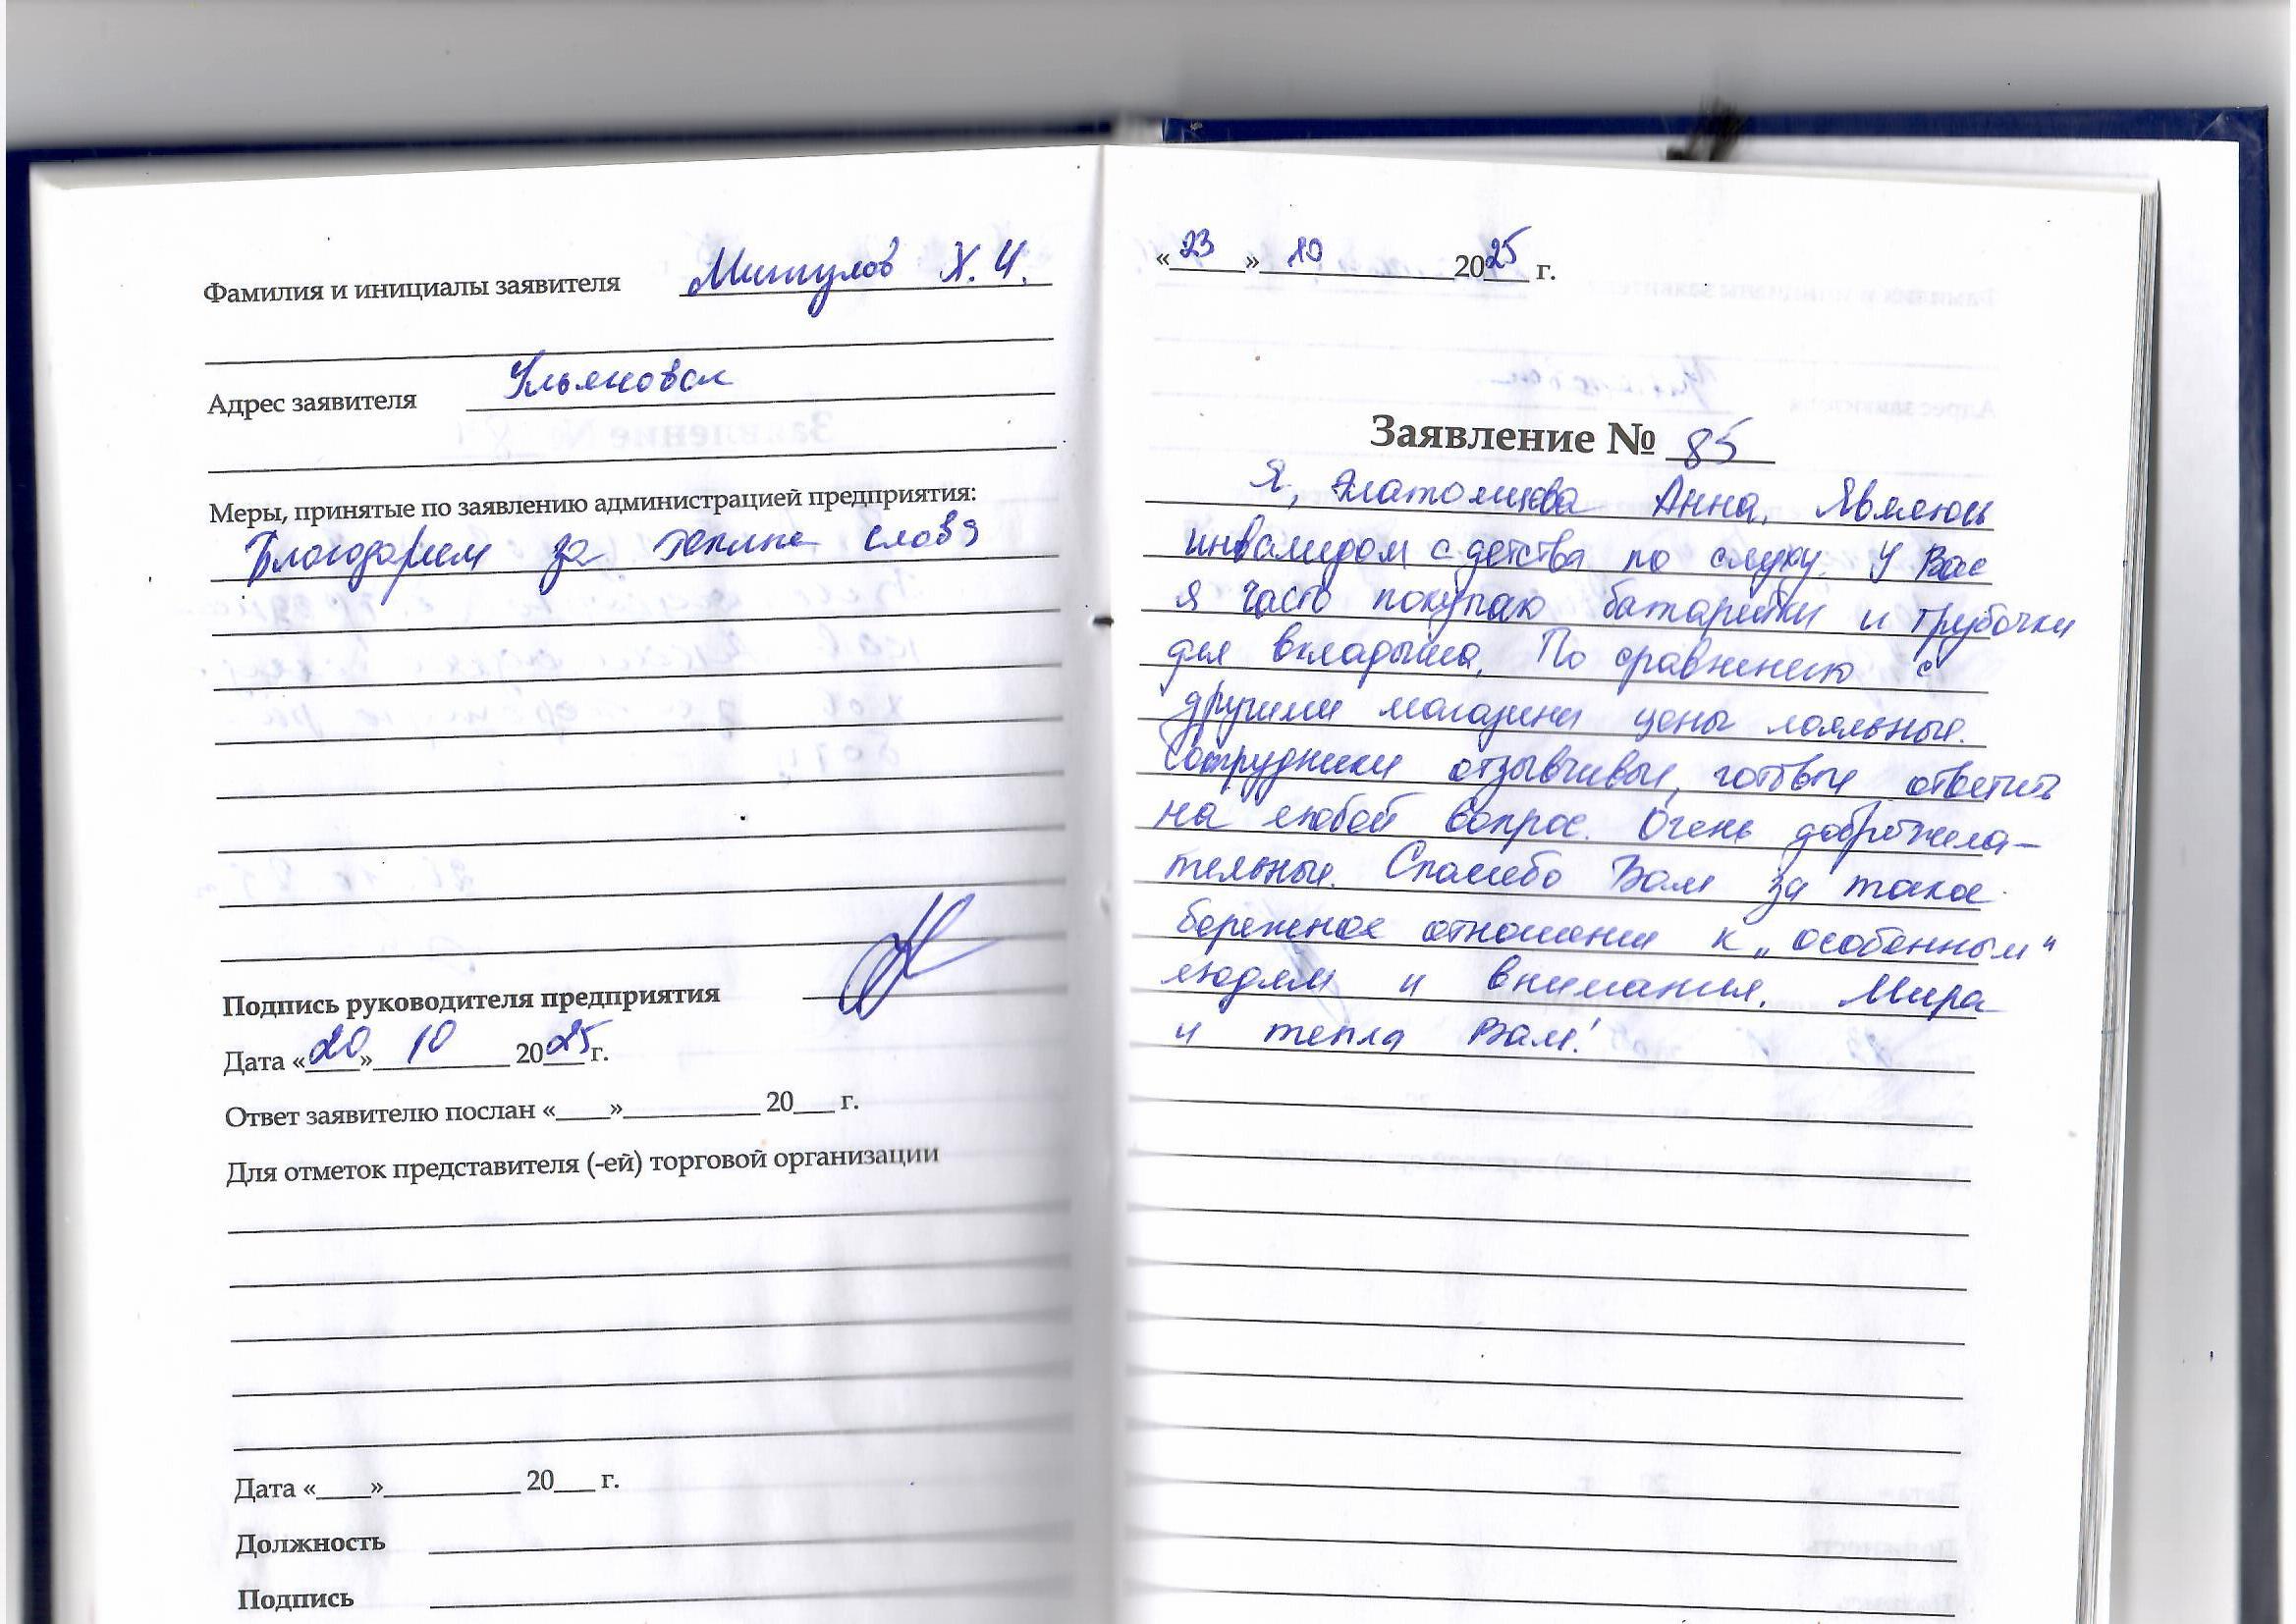 Фамилия и инициалы заявителя Митулов Х. И.
Адрес заявителя Ульяновск
Меры, принятые по заявлению администрацией предприятия:
Благодарим за теплые слова
Подпись руководителя предприятия
Дата «20» 10 2025 г.
Ответ заявителю послан «____»__________ 20___ г.
Для отметок представителя (-ей) торговой организации
Дата «____»__________ 20___ г.
Должность
Подпись
«23» 10 2025 г.
Заявление № 85
Я, Анна, являюсь
инвалидом с детства по слуху. У Вас
я часто покупаю батарейки и трубочки
для вкладыша, По сравнению с
другими магазини цены лояльные.
Сотрудники отзывчивые, готовые ответить
на любой вопрос. Очень доброжела-
тельные. Спасибо Вам за такое
бережное отношение к „особенным“
людям и внимания. Мира
и тепла Вам!